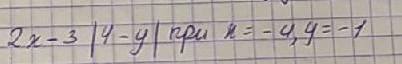 2x - 3 |4 - y| при x = -4, y = -1